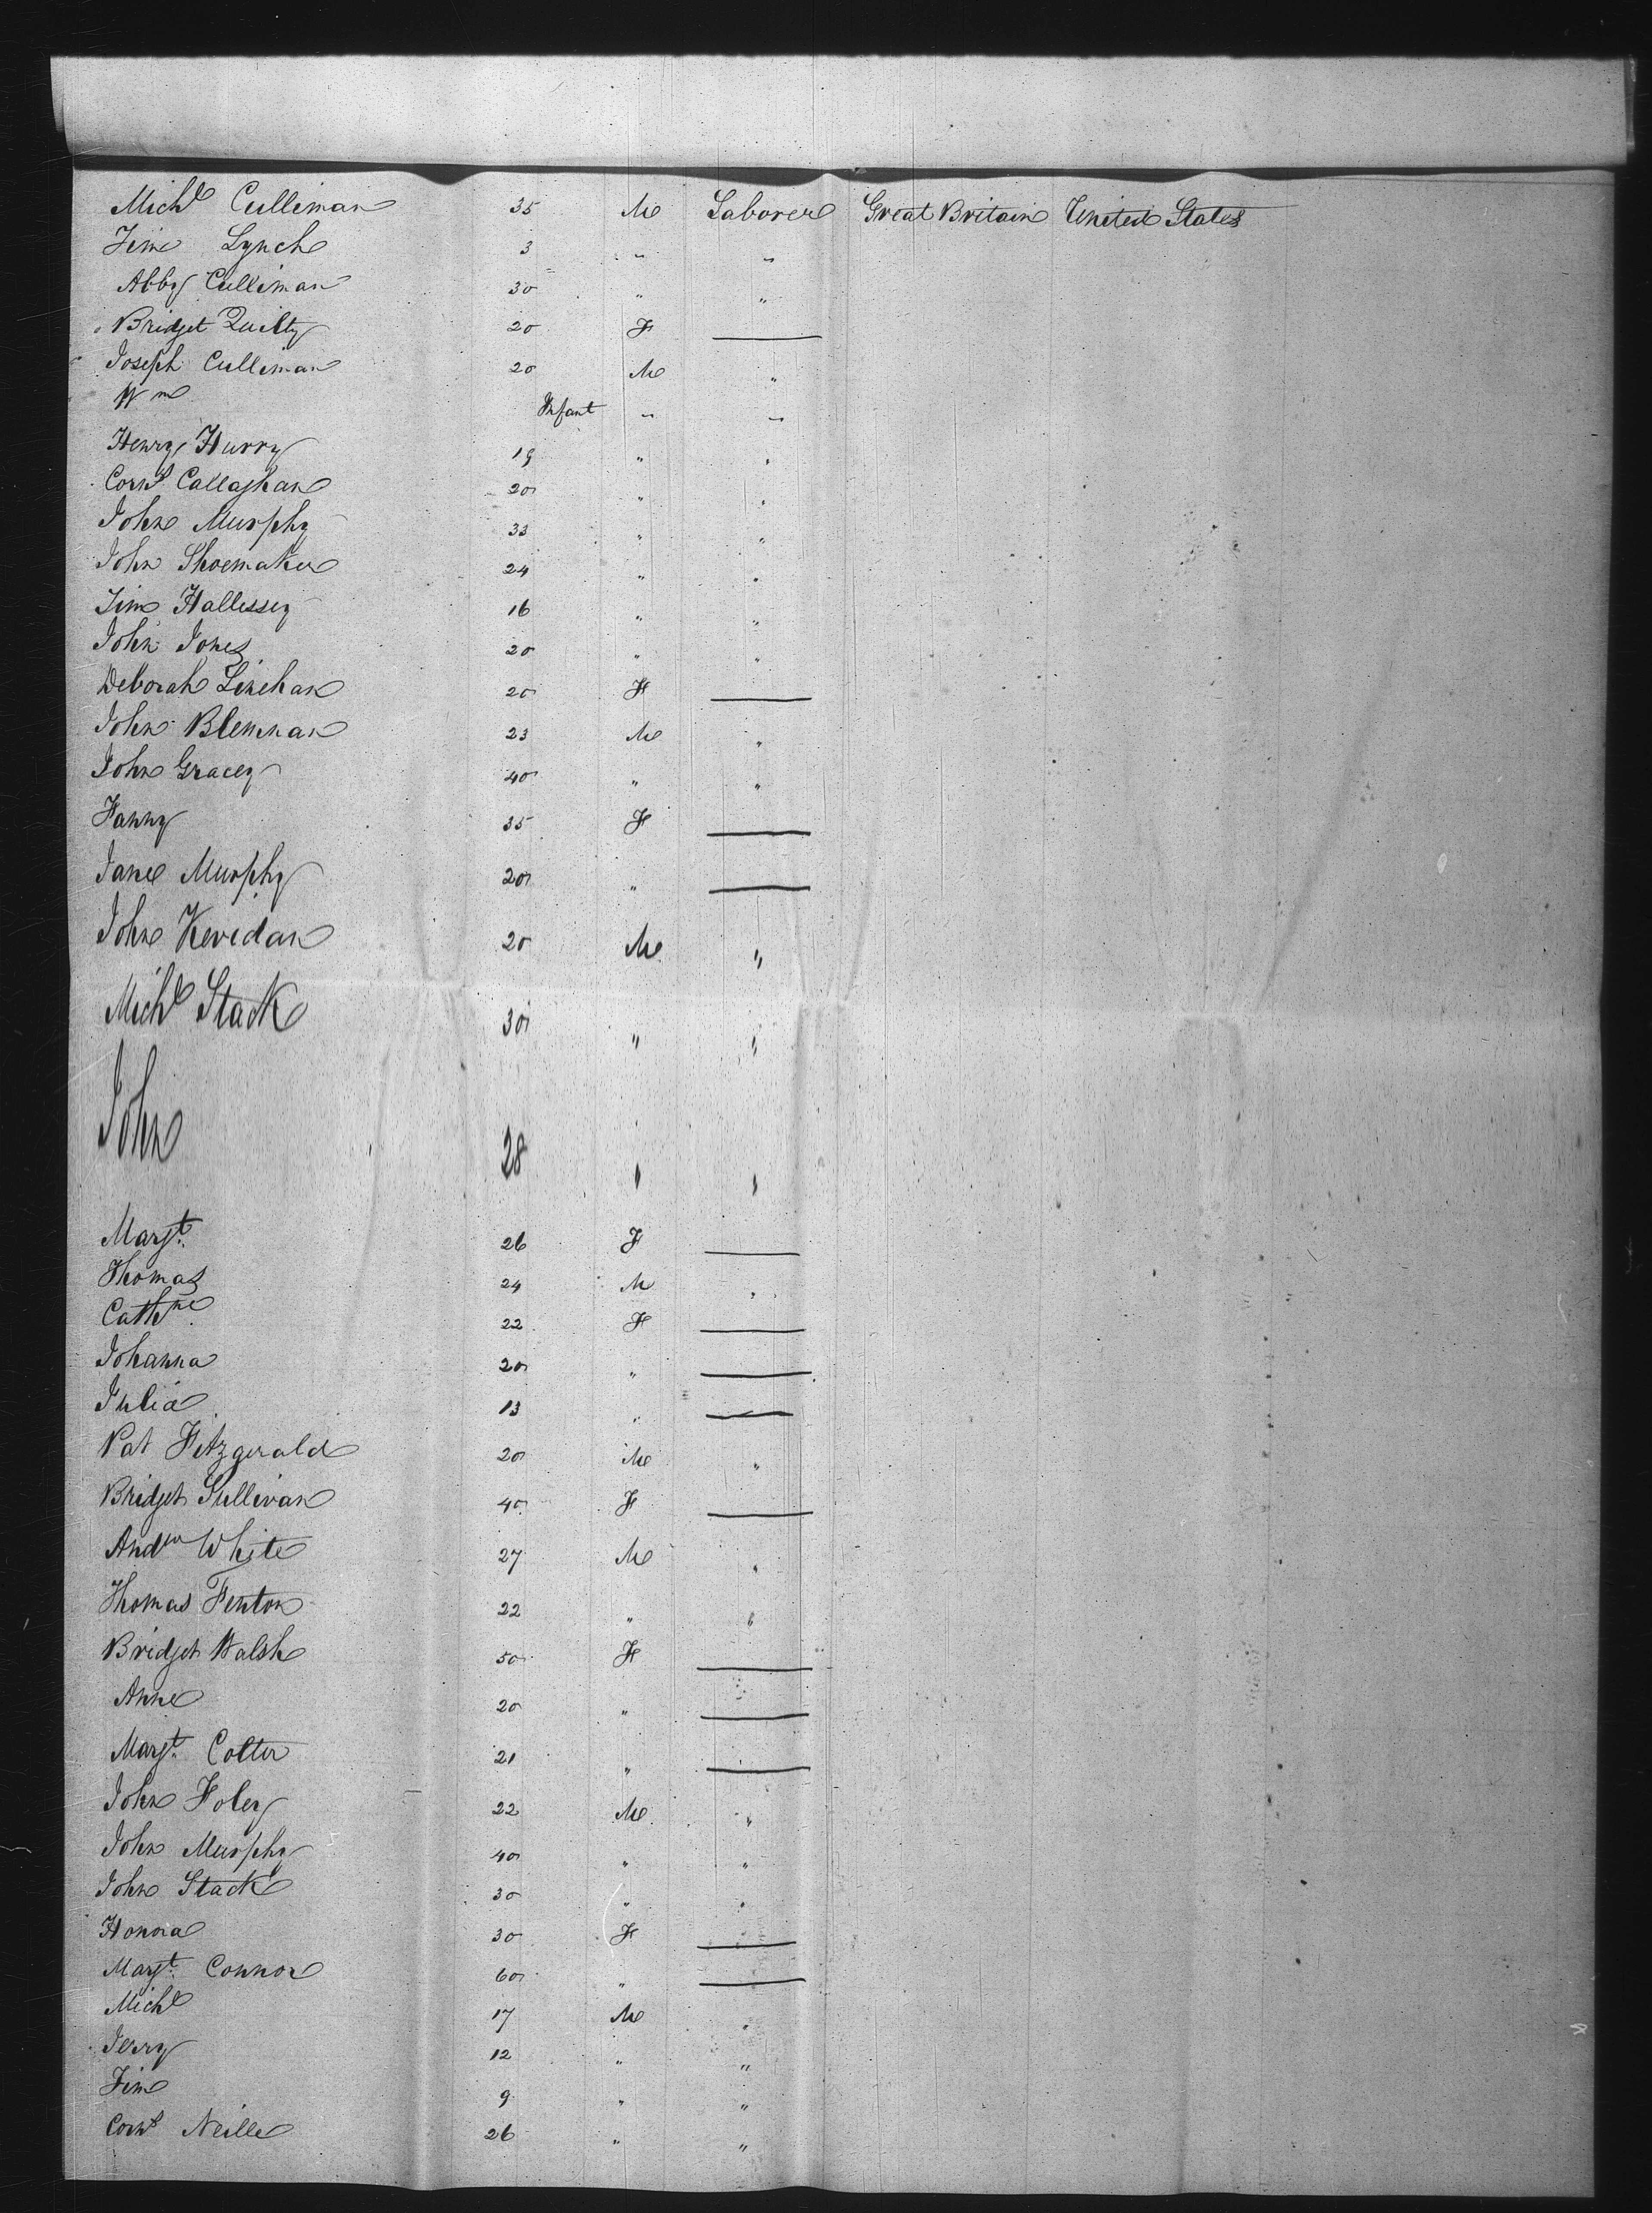 Michl Culliman 35 M Laborer Great Britain United States
Tim Lynch 3 " "
Abby Culliman 30 " "
Bridget Quilty 20 F —
Joseph Culliman 20 M "
Wm Infant " "
Henry Hurry 19 " "
Cornl Callaghan 20 " "
John Murphy 33 " "
John Shoemaker 24 " "
Tim Hallessey 16 " "
John Jones 20 " "
Deborah Linehan 20 F —
John Blennan 23 M "
John Gracey 40 " "
Fanny 35 F —
Jane Murphy 20 " —
John Keridan 20 M "
Michl Stack 30 " "
John 28 " "
Margt. 26 F —
Thomas 24 M "
Cathne 22 F —
Johanna 20 " —
Julia 13 " —
Pat Fitzgerald 20 M "
Bridget Sullivan 40 F —
Andw White 27 M "
Thomas Fenton 22 " "
Bridget Walsh 50 F —
Anne 20 " —
Margt. Colter 21 " —
John Foley 22 M "
John Murphy 40 " "
John Stack 30 " "
Honora 30 F —
Margt. Connor 60 " —
Michl 17 M "
Jerry 12 " "
Tim 9 " "
Cornl Neille 26 " "